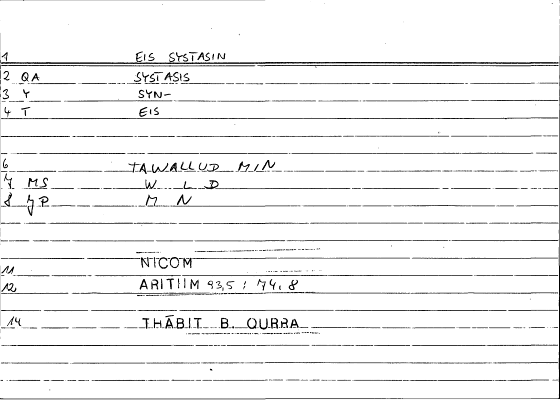 1 EIS SYSTASIN
2 QA SYSTASIS
3 Y SYN-
4 T EIS
6 TAWALLUD MIN
7 MS W L D
8 JP M N
11 NICOM
12 ARITIIM 93,5 : 74,8
14 THĀBIT B. QURRA